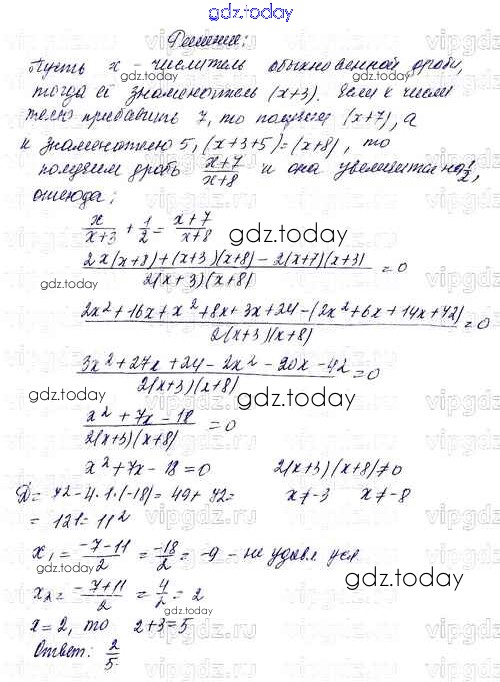 gdz.today
Решение:
Пусть x – числитель обыкновенной дроби,
тогда её знаменатель (x+3). Если к числи
телю прибавить 7, то получим (x+7), а
к знаменателю 5, (x+3+5)=(x+8), то
получим дробь (x+7)/(x+8) и она увеличится на 1/2,
отсюда:
x/(x+3) + 1/2 = (x+7)/(x+8)
(2x(x+8)+(x+3)(x+8)−2(x+7)(x+3))/(2(x+3)(x+8)) = 0
(2x²+16x+x²+8x+3x+24−(2x²+6x+14x+42))/(2(x+3)(x+8)) = 0
(3x²+27x+24−2x²−20x−42)/(2(x+3)(x+8)) = 0
(x²+7x−18)/(2(x+3)(x+8)) = 0
x²+7x−18=0 2(x+3)(x+8)≠0
D=7²−4·1·(−18)=49+72= x≠−3 x≠−8
=121=11²
x₁=(−7−11)/2=−18/2=−9 – не удовл. усл
x₂=(−7+11)/2=4/2=2
x=2, то 2+3=5
Ответ: 2/5.